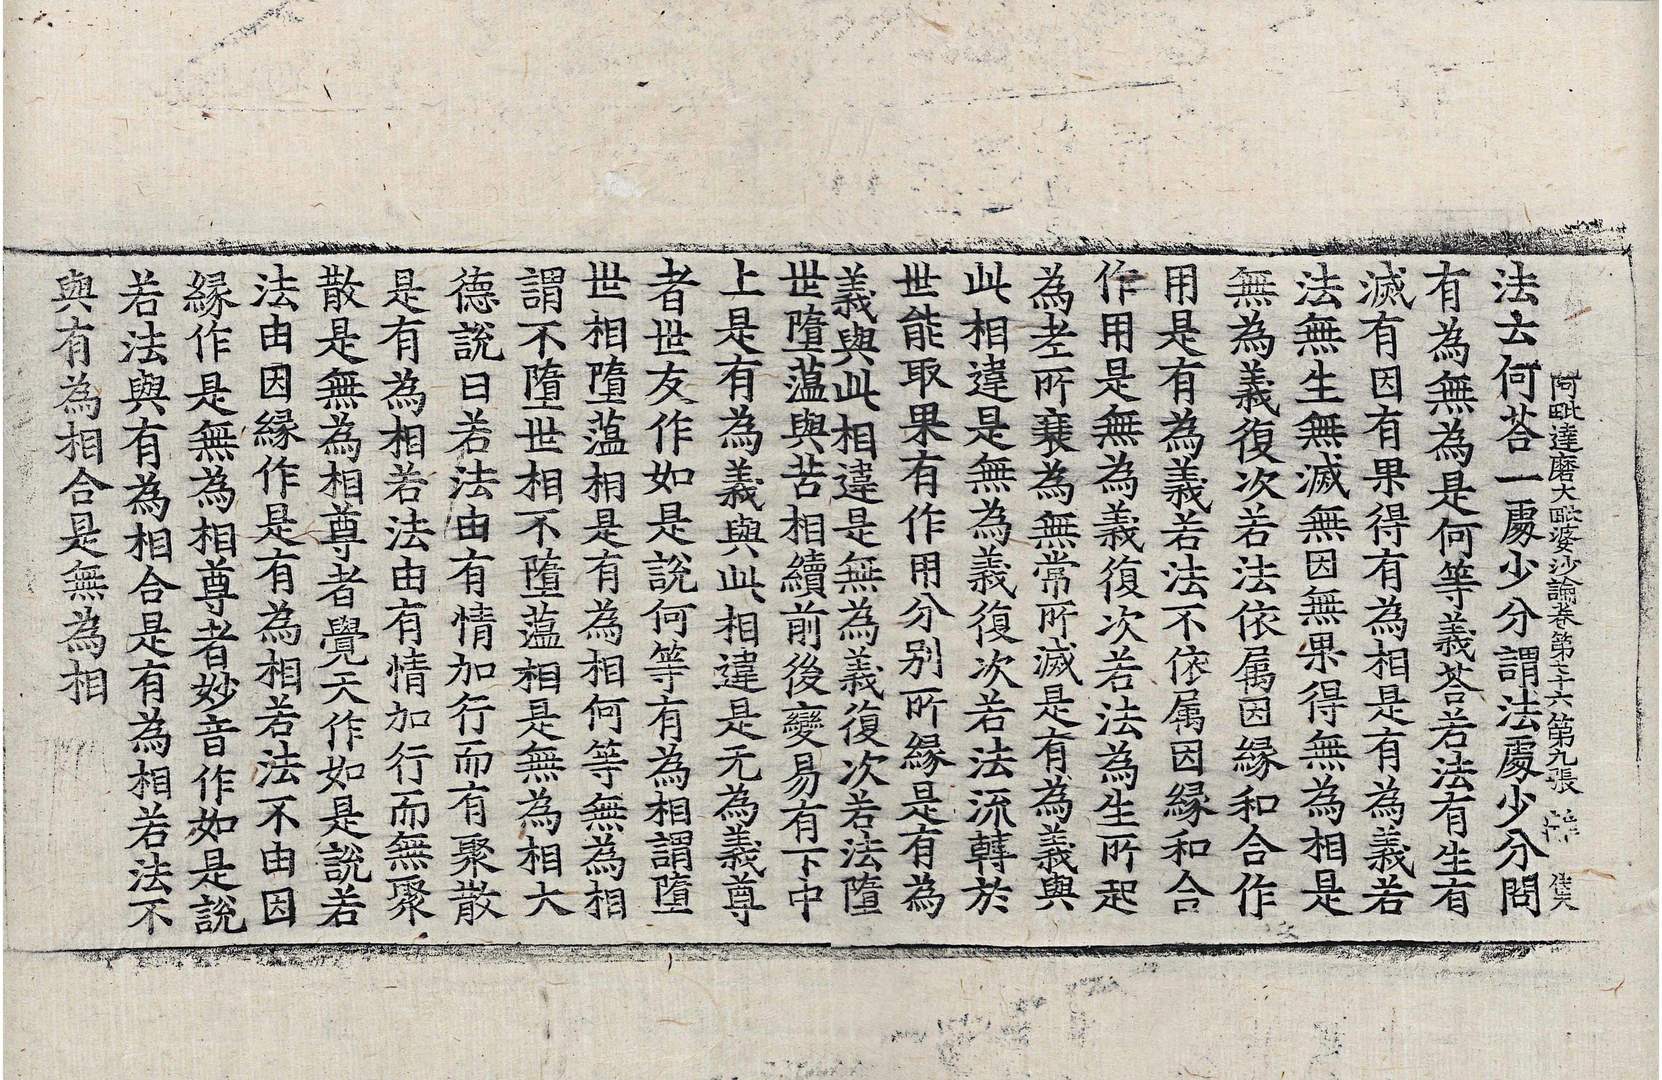 阿毗達磨大毗婆沙論卷第七十六 第九張
法云何荅一處少分謂法處少分問
有為無為是何等義荅若法有生有
滅有因有果得有為相是有為義若
法無生無滅無因無果得無為相是
無為義復次若法依属因緣和合作
用是有為義若法不依属因緣和合
作用是無為義復次若法為生所起
為老所衰為無常所滅是有為義與
此相違是無為義復次若法流轉於
世能取果有作用分別所緣是有為
義與此相違是無為義復次若法墮
世墮蕰與苦相續前後變易有下中
上是有為義與此相違是无為義尊
者世友作如是說何等有為相謂墮
世相墮蕰相是有為相何等無為相
謂不墮世相不墮蕰相是無為相大
德說曰若法由有情加行而有聚散
是有為相若法由有情加行而無聚
散是無為相尊者覺天作如是說若
法由因緣作是有為相若法不由因
緣作是無為相尊者妙音作如是說
若法與有為相合是有為相若法不
與有為相合是無為相